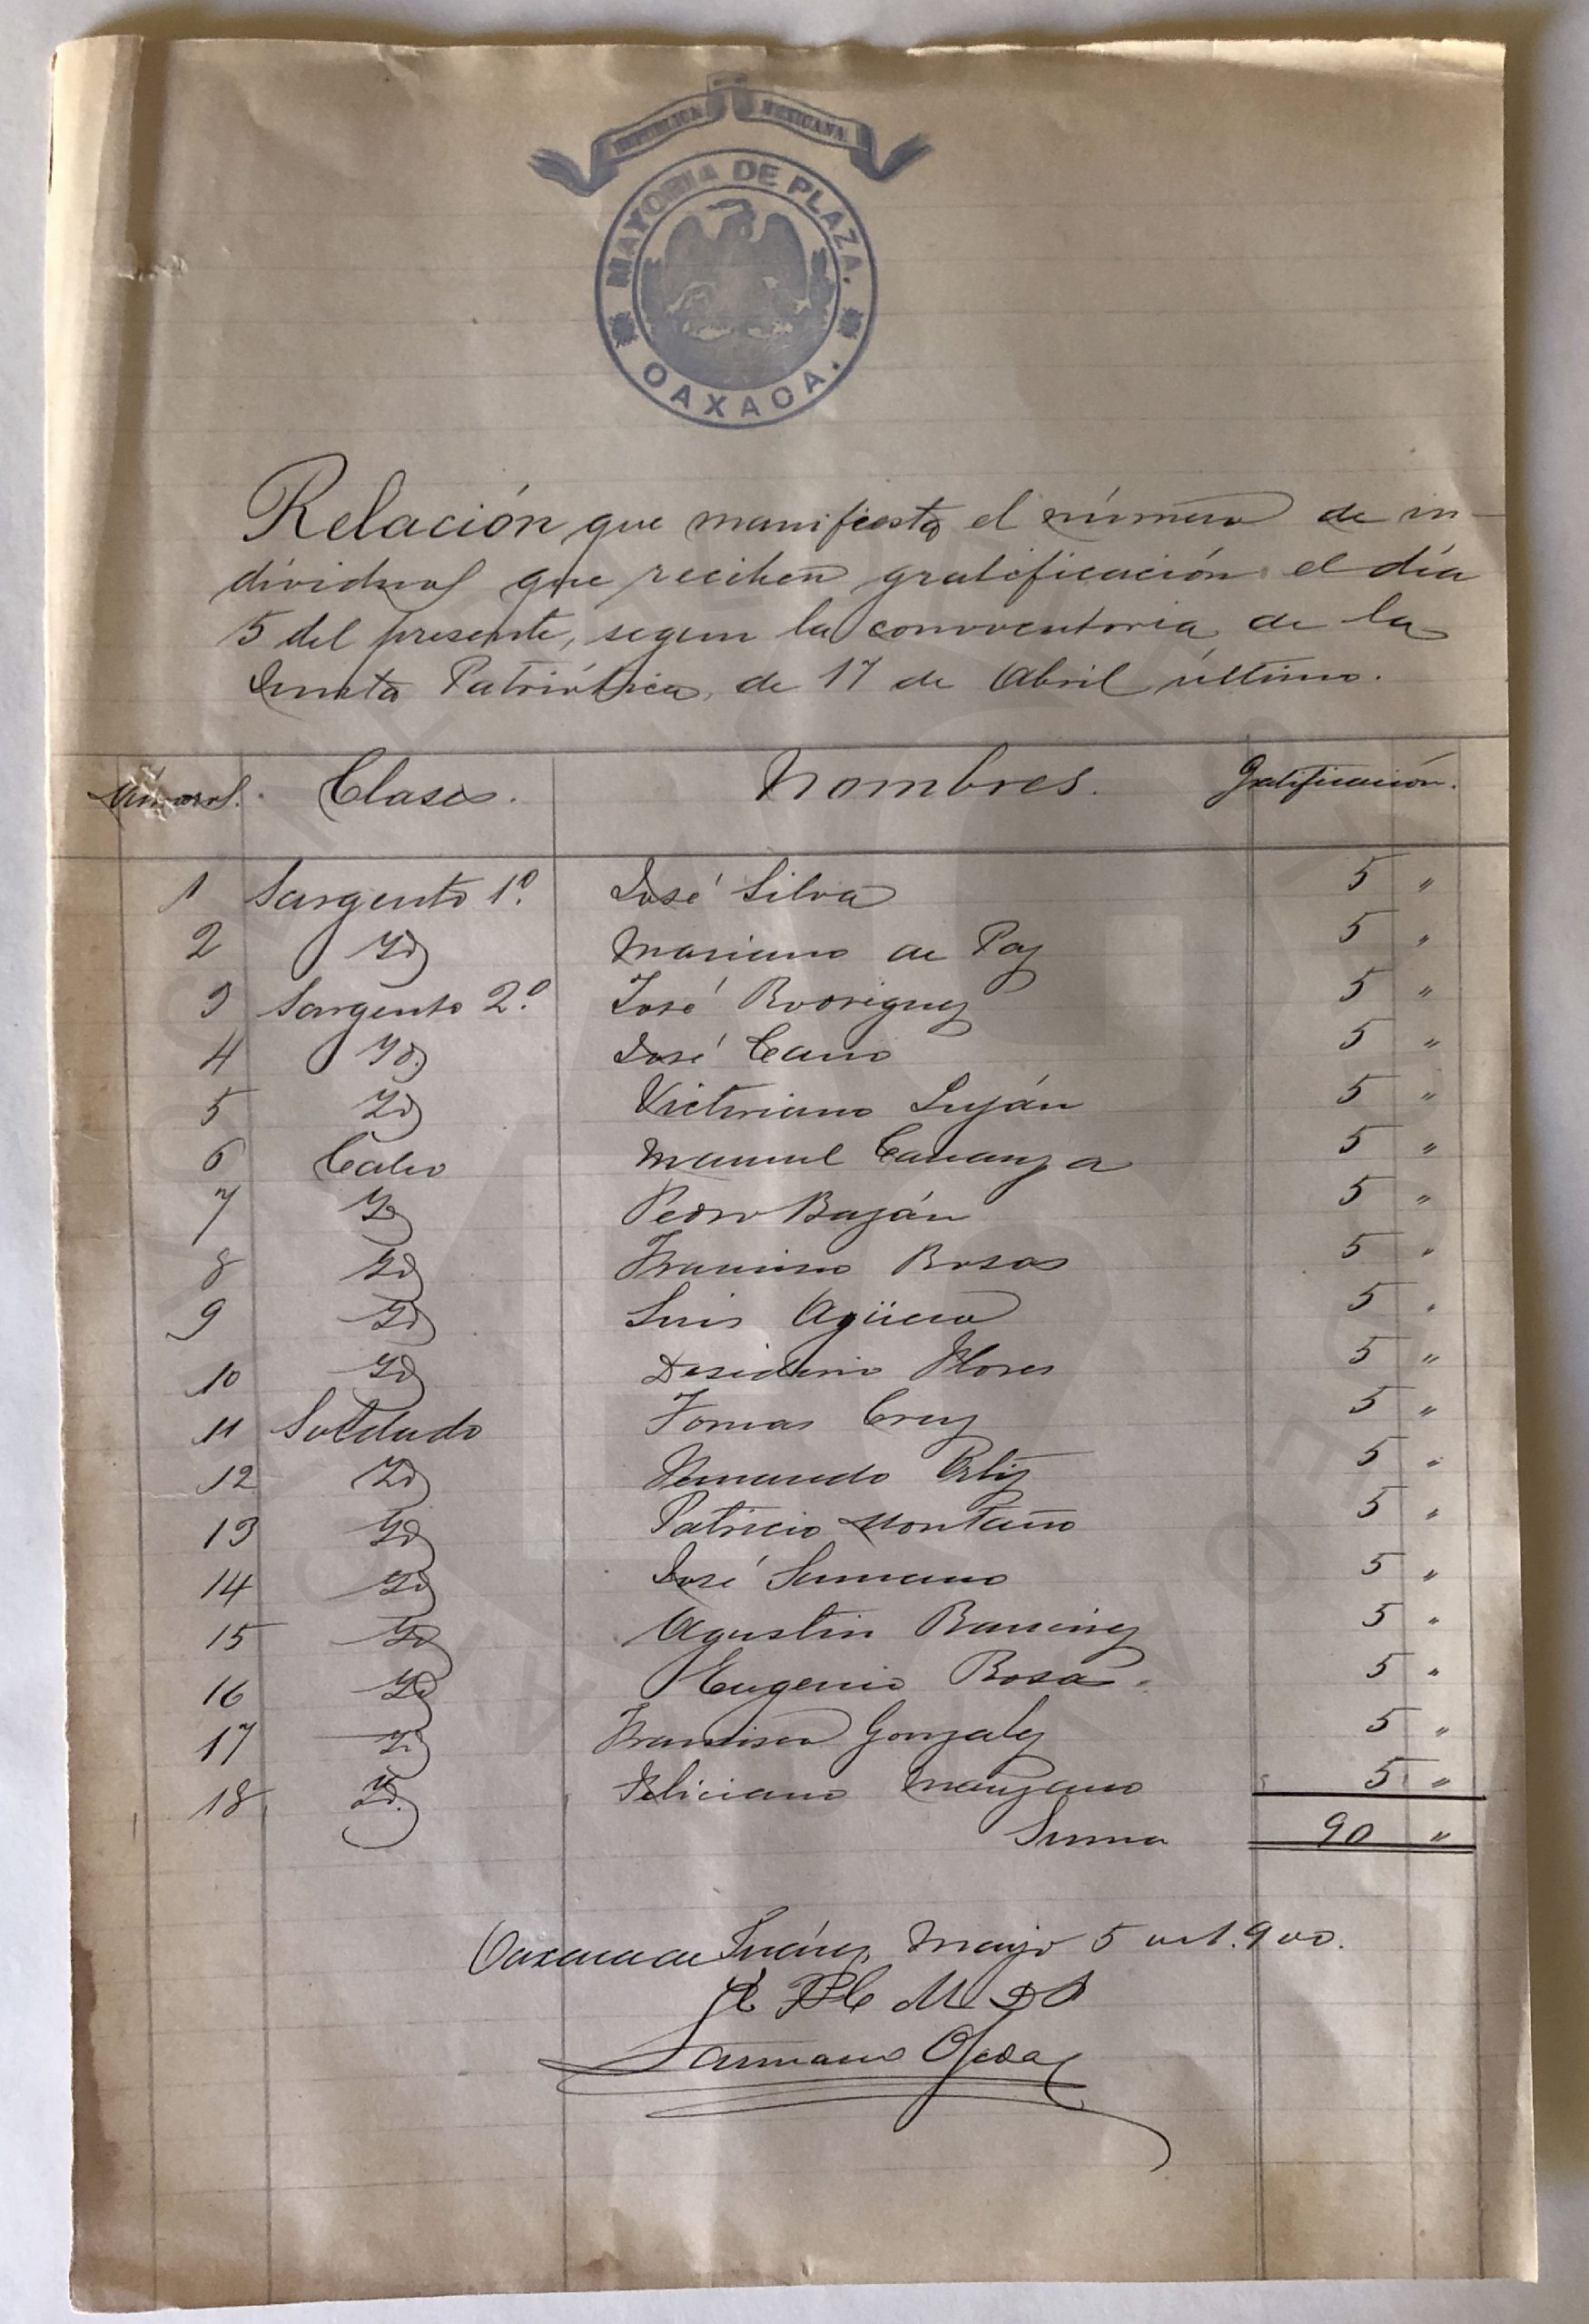 REPUBLICA MEXICANA
MAYORIA DE PLAZA.
OAXACA.
Relación que manifiesta el número de in-
dividuos que reciben gratificación el día
5 del presente, segun la convocatoria de la
Junta Patriótica, de 17 de Abril último.
Números. Clases. Nombres. Gratificación.
1 Sargento 1º. José Silva 5 "
2 Id Mariano de Paz 5 "
3 Sargento 2º. José Rodriguez 5 "
4 Id. José Cano 5 "
5 Id Victoriano Luján 5 "
6 Cabo Manuel Carranza 5 "
7 Id Pedro Bazán 5 "
8 Id Francisco Rosas 5 "
9 Id Luis Agüero 5 "
10 Id Desiderio Flores 5 "
11 Soldado Tomas Cruz 5 "
12 Id Fernando Ortiz 5 "
13 Id Patricio Montaño 5 "
14 Id José Sumano 5 "
15 Id Agustin Ramirez 5 "
16 Id Eugenio Rosas 5 "
17 Id Francisco Gonzalez 5 "
18 Id. Feliciano Manzano 5 "
Suma 90 "
Oaxaca de Juárez, Mayo 5 de 1.900.
M D P
Ojeda